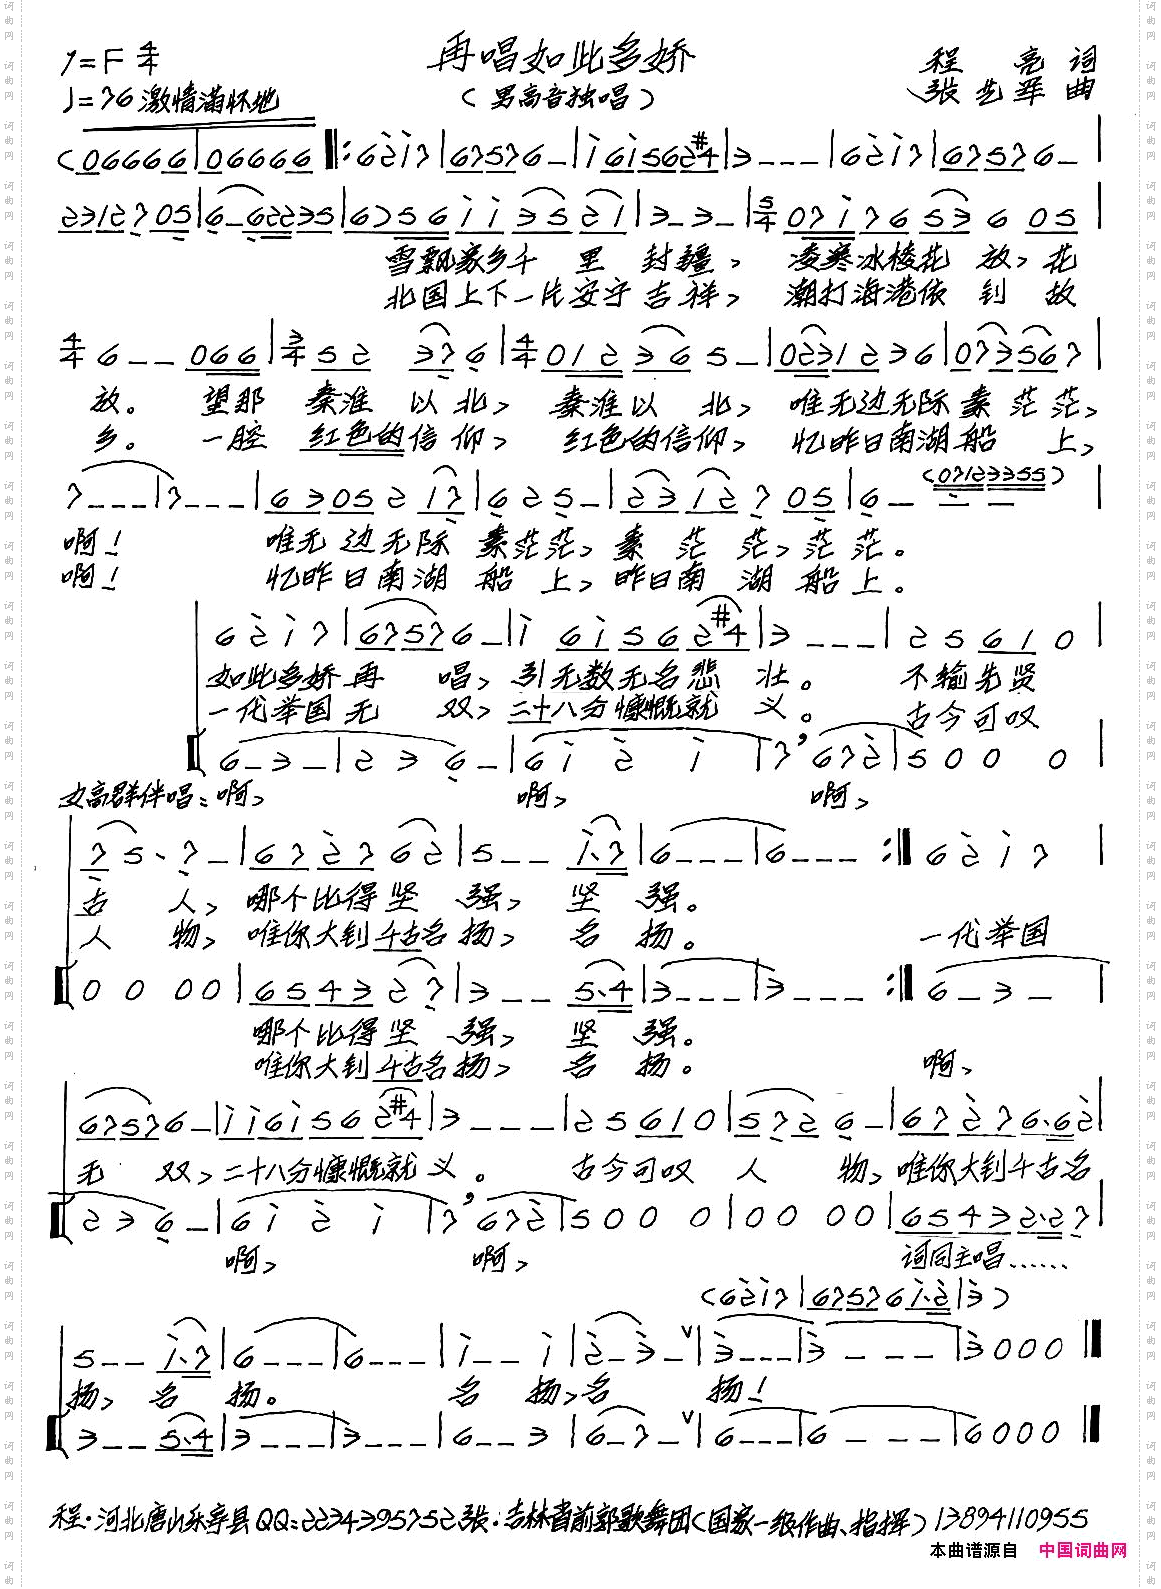 再唱如此多娇
1=F 4/4
♩=76 激情满怀地
（男高音独唱）
程 亮 词
张艺军 曲
(06666 6|06666 6 ‖: 6 2 i 7 | 67 57 6 – | i 6 i 5 6 2 #4 | 3 – – – | 6 2 i 7 | 67 57 6 – |
2312 7 05 | 6 – 6 2235 | 6 7 5 6 i i 3 5 2 i | 3 – 3 – | 5/4 0 7 i 7 6 5 3 6 05 |
雪飘家乡千 里 封疆， 凌寒冰棱花 放，花
北国上下一片安宁吉祥， 潮打海港依 钊 故
4/4 6 – – 066 | 3/4 5 2 3 7 6 | 4/4 0 1 2 3 6 5 – | 02312 36 | 07 3567 |
放。 望那 秦淮 以北， 秦淮以 北， 唯无边无际 素 茫茫，
乡。 一腔 红色的信仰， 红色的信仰， 忆昨日南湖船 上，
7 – – – | 7 – – – | 6 3 05 2 1 7 | 6 2 5 – | 2 3 1 2 7 05 | 6 – (07123355)
啊！ 唯无 边无际 素茫茫，素 茫 茫，茫 茫。
啊！ 忆昨日南湖 船 上，昨日南 湖 船 上。
6 2 i 7 | 67 57 6 – | i 6 i 5 6 2 #4 | 3 – – – | 2 5 6 1 0 |
如此多娇 再 唱，引无数无名悲 壮。 不输先贤
一代举国 无 双，二十八分慷慨就 义。 古今可叹
6 – 3 – | 2 3 6 – | 6 i 2 i | 7， 6 7 2 | 5 0 0 0 |
女高群伴唱：啊， 啊， 啊，
7 5 · 7 – | 67 27 62 | 5 – – i·7 | 6 – – – | 6 – – – :‖ 6 2 i 7 |
古 人，哪个比得坚 强， 坚 强。
人 物，唯你大钊千古名扬， 名 扬。 一代举国
0 0 0 0 | 6 5 4 3 2 7 | 3 – – 5·4 | 3 – – – | 3 – – – :‖ 6 – 3 – |
哪个比得坚 强， 坚 强。
唯你大钊千古名扬， 名 扬。 啊，
67 57 6 – | i i 6 i 5 6 2 #4 | 3 – – – | 2 5 6 1 0 | 5 7 2 6 – | 67 27 6·6 2 |
无 双，二十八分慷慨就 义。 古今可叹 人 物，唯你大钊千古名
2 3 6 – | 6 i 2 i | 7， 6 7 2 | 5 0 0 0 | 0 0 0 0 | 6 5 4 3 2·2 7 |
啊， 啊， 词同主唱……
(6 2 i 7 | 67 57 6 i·2 | 3)
5 – – i·7 | 6 – – – | 6 – – – | i – – i | 2 – 3 – | 3 – – – | 3 – – – | 3 0 0 0 ‖
扬，名 扬。 名 扬，名 扬！
3 – – 5·4 | 3 – – – | 3 – – – | 6 – – 3 | 6 – 7 – | 6 – – – | 6 – – – | 6 0 0 0 ‖
程·河北唐山乐亭县QQ：2234395752 张·吉林省前郭歌舞团（国家一级作曲、指挥）13894110955
本曲谱源自 中国词曲网